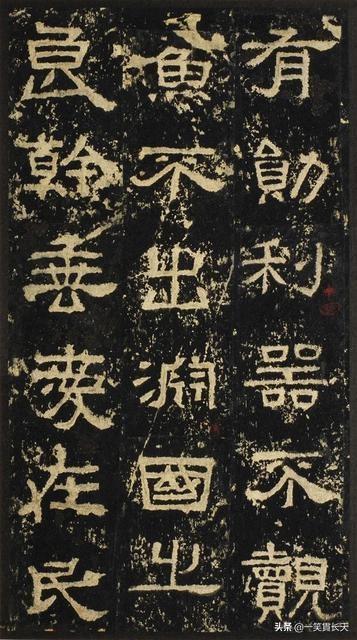 有勛利器不覿
魚不出淵國之
良幹垂愛在民
头条 @一笑貫长天